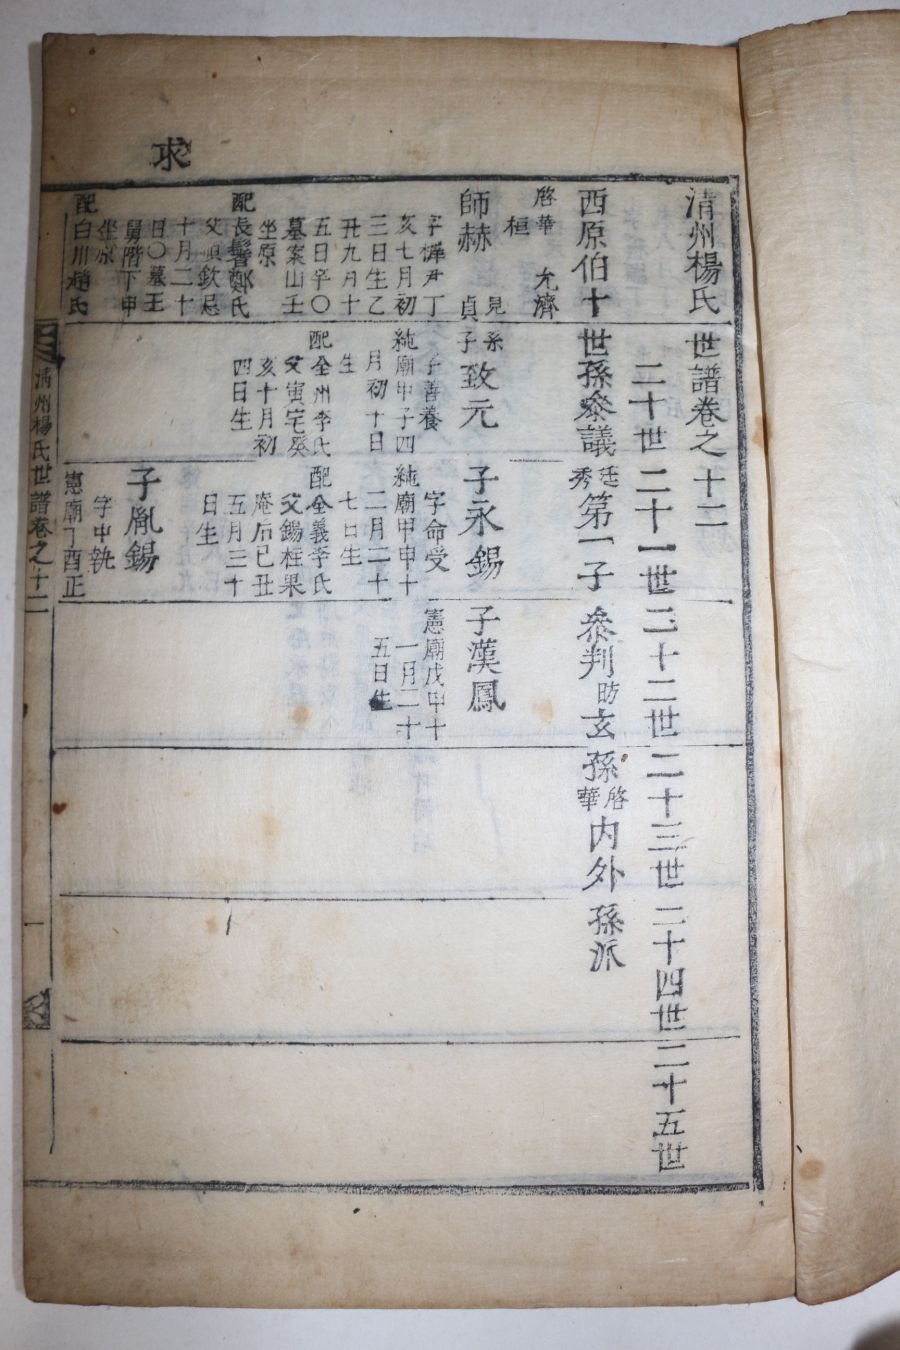 求
清州楊氏世譜卷之十二
二十世 二十一世 二十二世 二十三世 二十四世 二十五世
西原伯十世孫叅議廷秀第一子叅判昉玄孫啓華內外孫派
啓華 允濟
桓 見系
師赫 貞子
字
丁
亥七月初
三日生乙
丑九月十
五日卒〇
墓案山壬
坐原
配長鬐鄭氏
父順欽忌
十月二十
日〇墓王
舅階下申
坐原
配白川趙氏
致元
字善養
純廟甲子四
月初十日
生
配全州李氏
父寅宅癸
亥十月初
四日生
子永錫
字命受
純廟甲申十
二月二十
七日生
配全義李氏
父錫柱果
庵后己丑
五月三十
日生
子胤錫
字中執
憲廟丁酉正
子漢鳳
憲廟戊申十
一月二十
五日生
清州楊氏世譜卷之十二
一